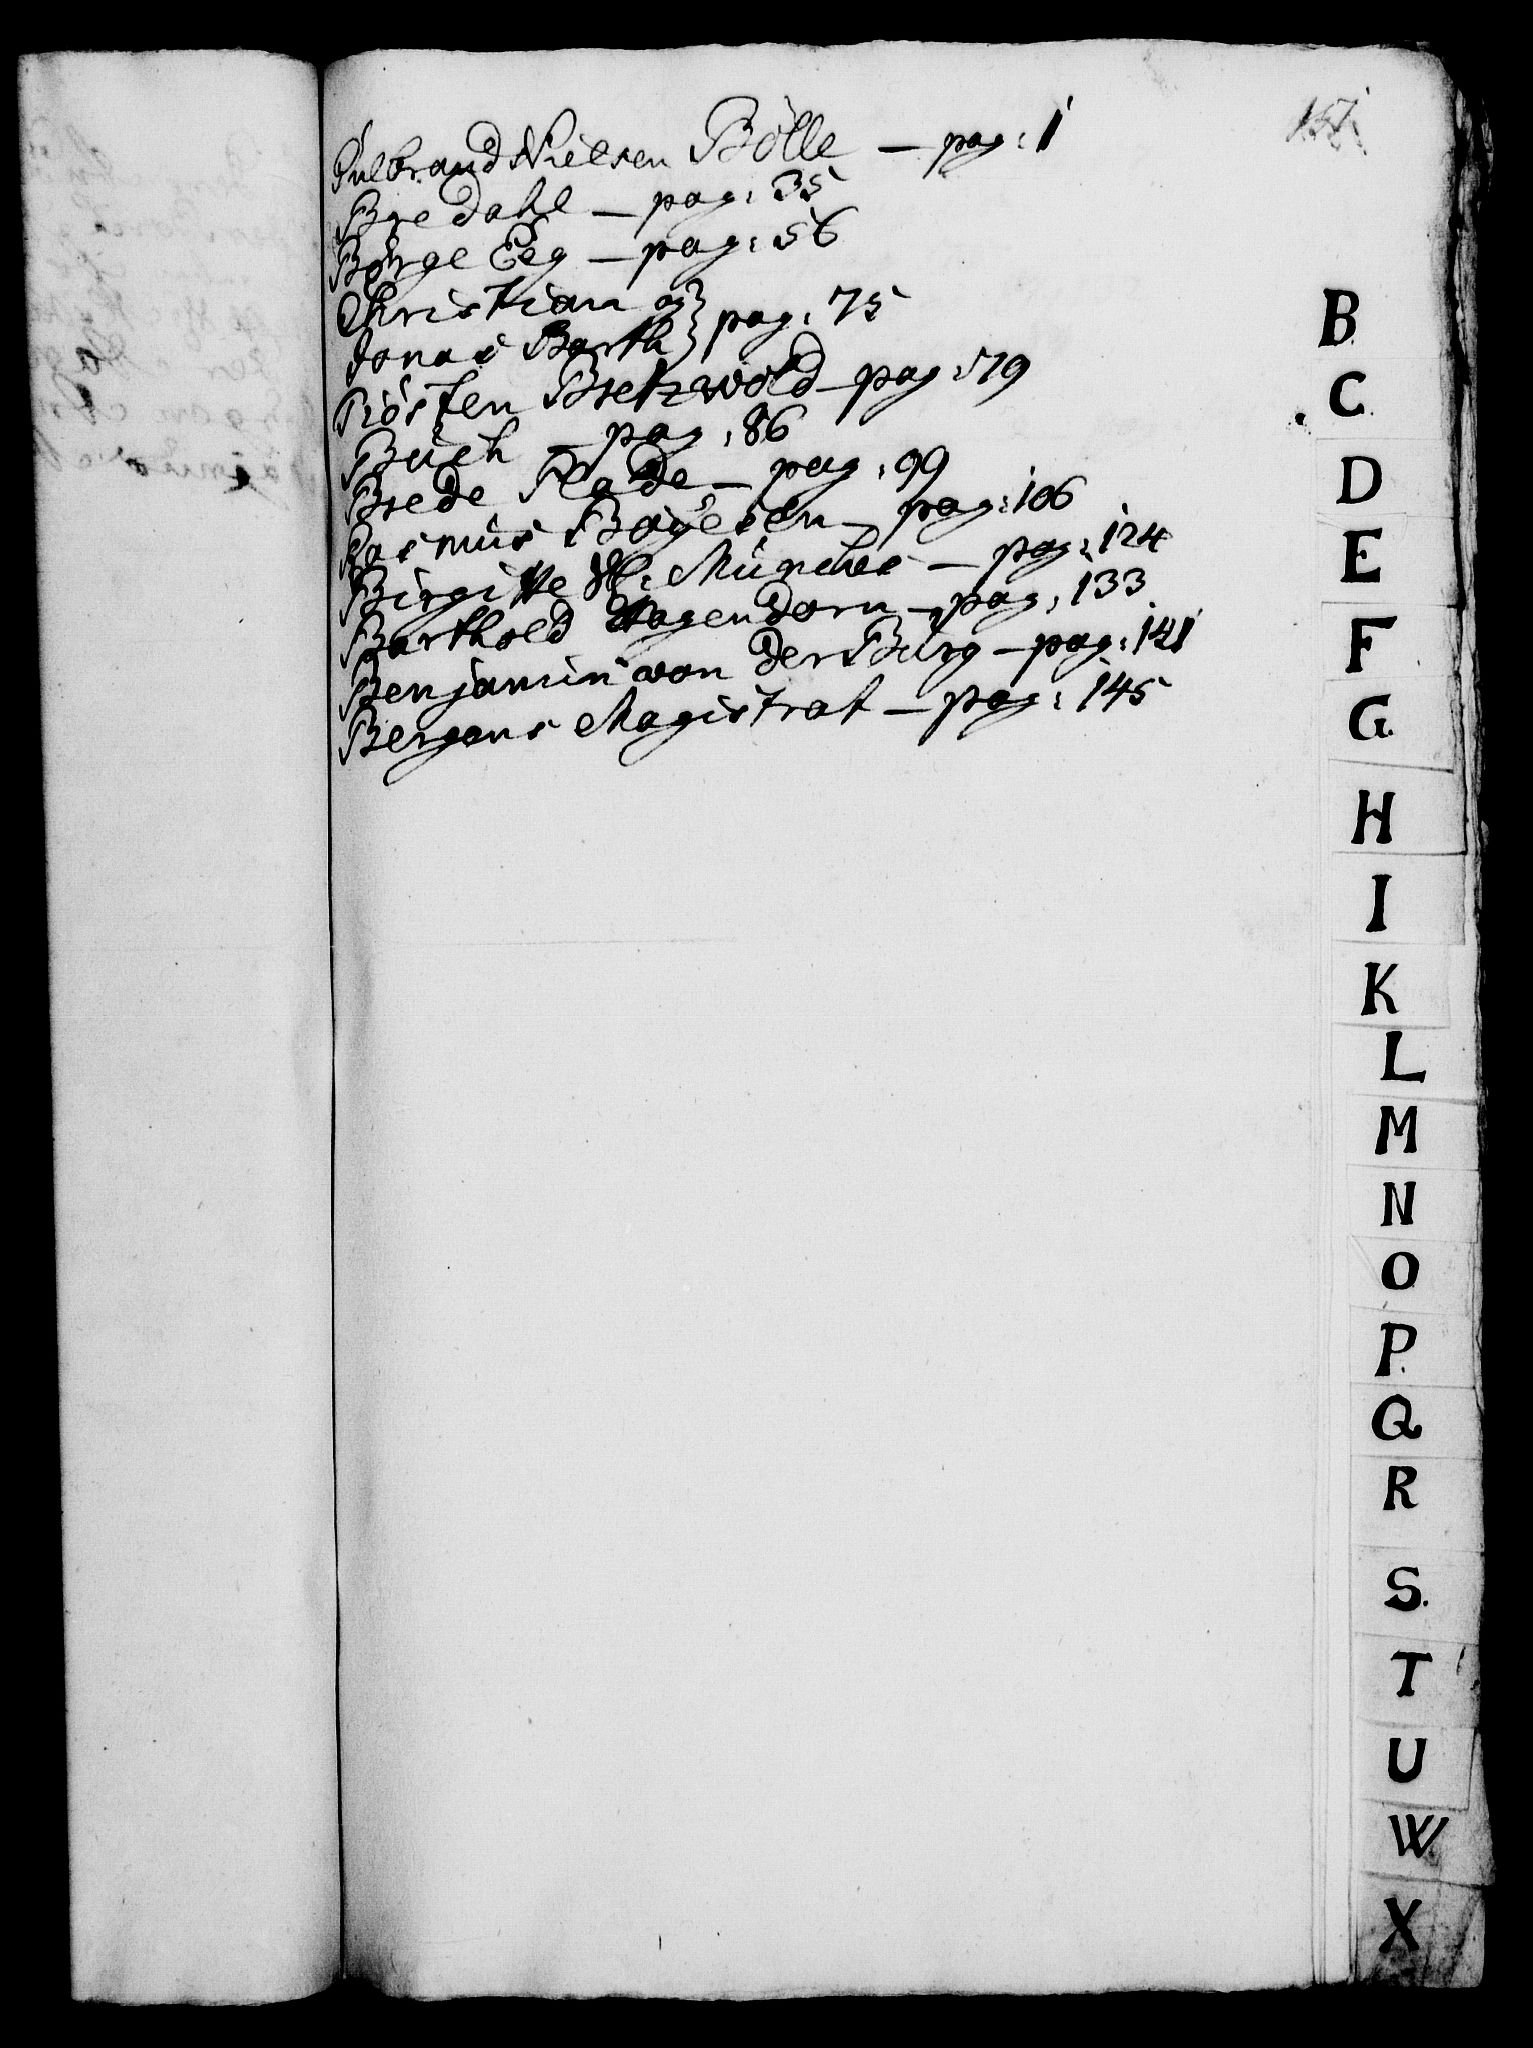 Gulbrand Nielsen Bölle — pag: 1
Bredahl — pag: 35
Børge Eeg — pag: 56
Christian og
Jonas Barth } pag: 75
Tiøsten Bretzwold — pag: 79
Buch — pag: 86
Brede Rode — pag: 99
Rasmus Boÿesen — pag: 106
Birgitte Sl: Munches — pag: 124
Barthold Hagendorn — pag: 133
Benjamin von der Burg — pag: 141
Bergens Magistrat — pag: 145
B
C
D
E
F
G
H
I
K
L
M
N
O
P
Q
R
S
T
U
W
X